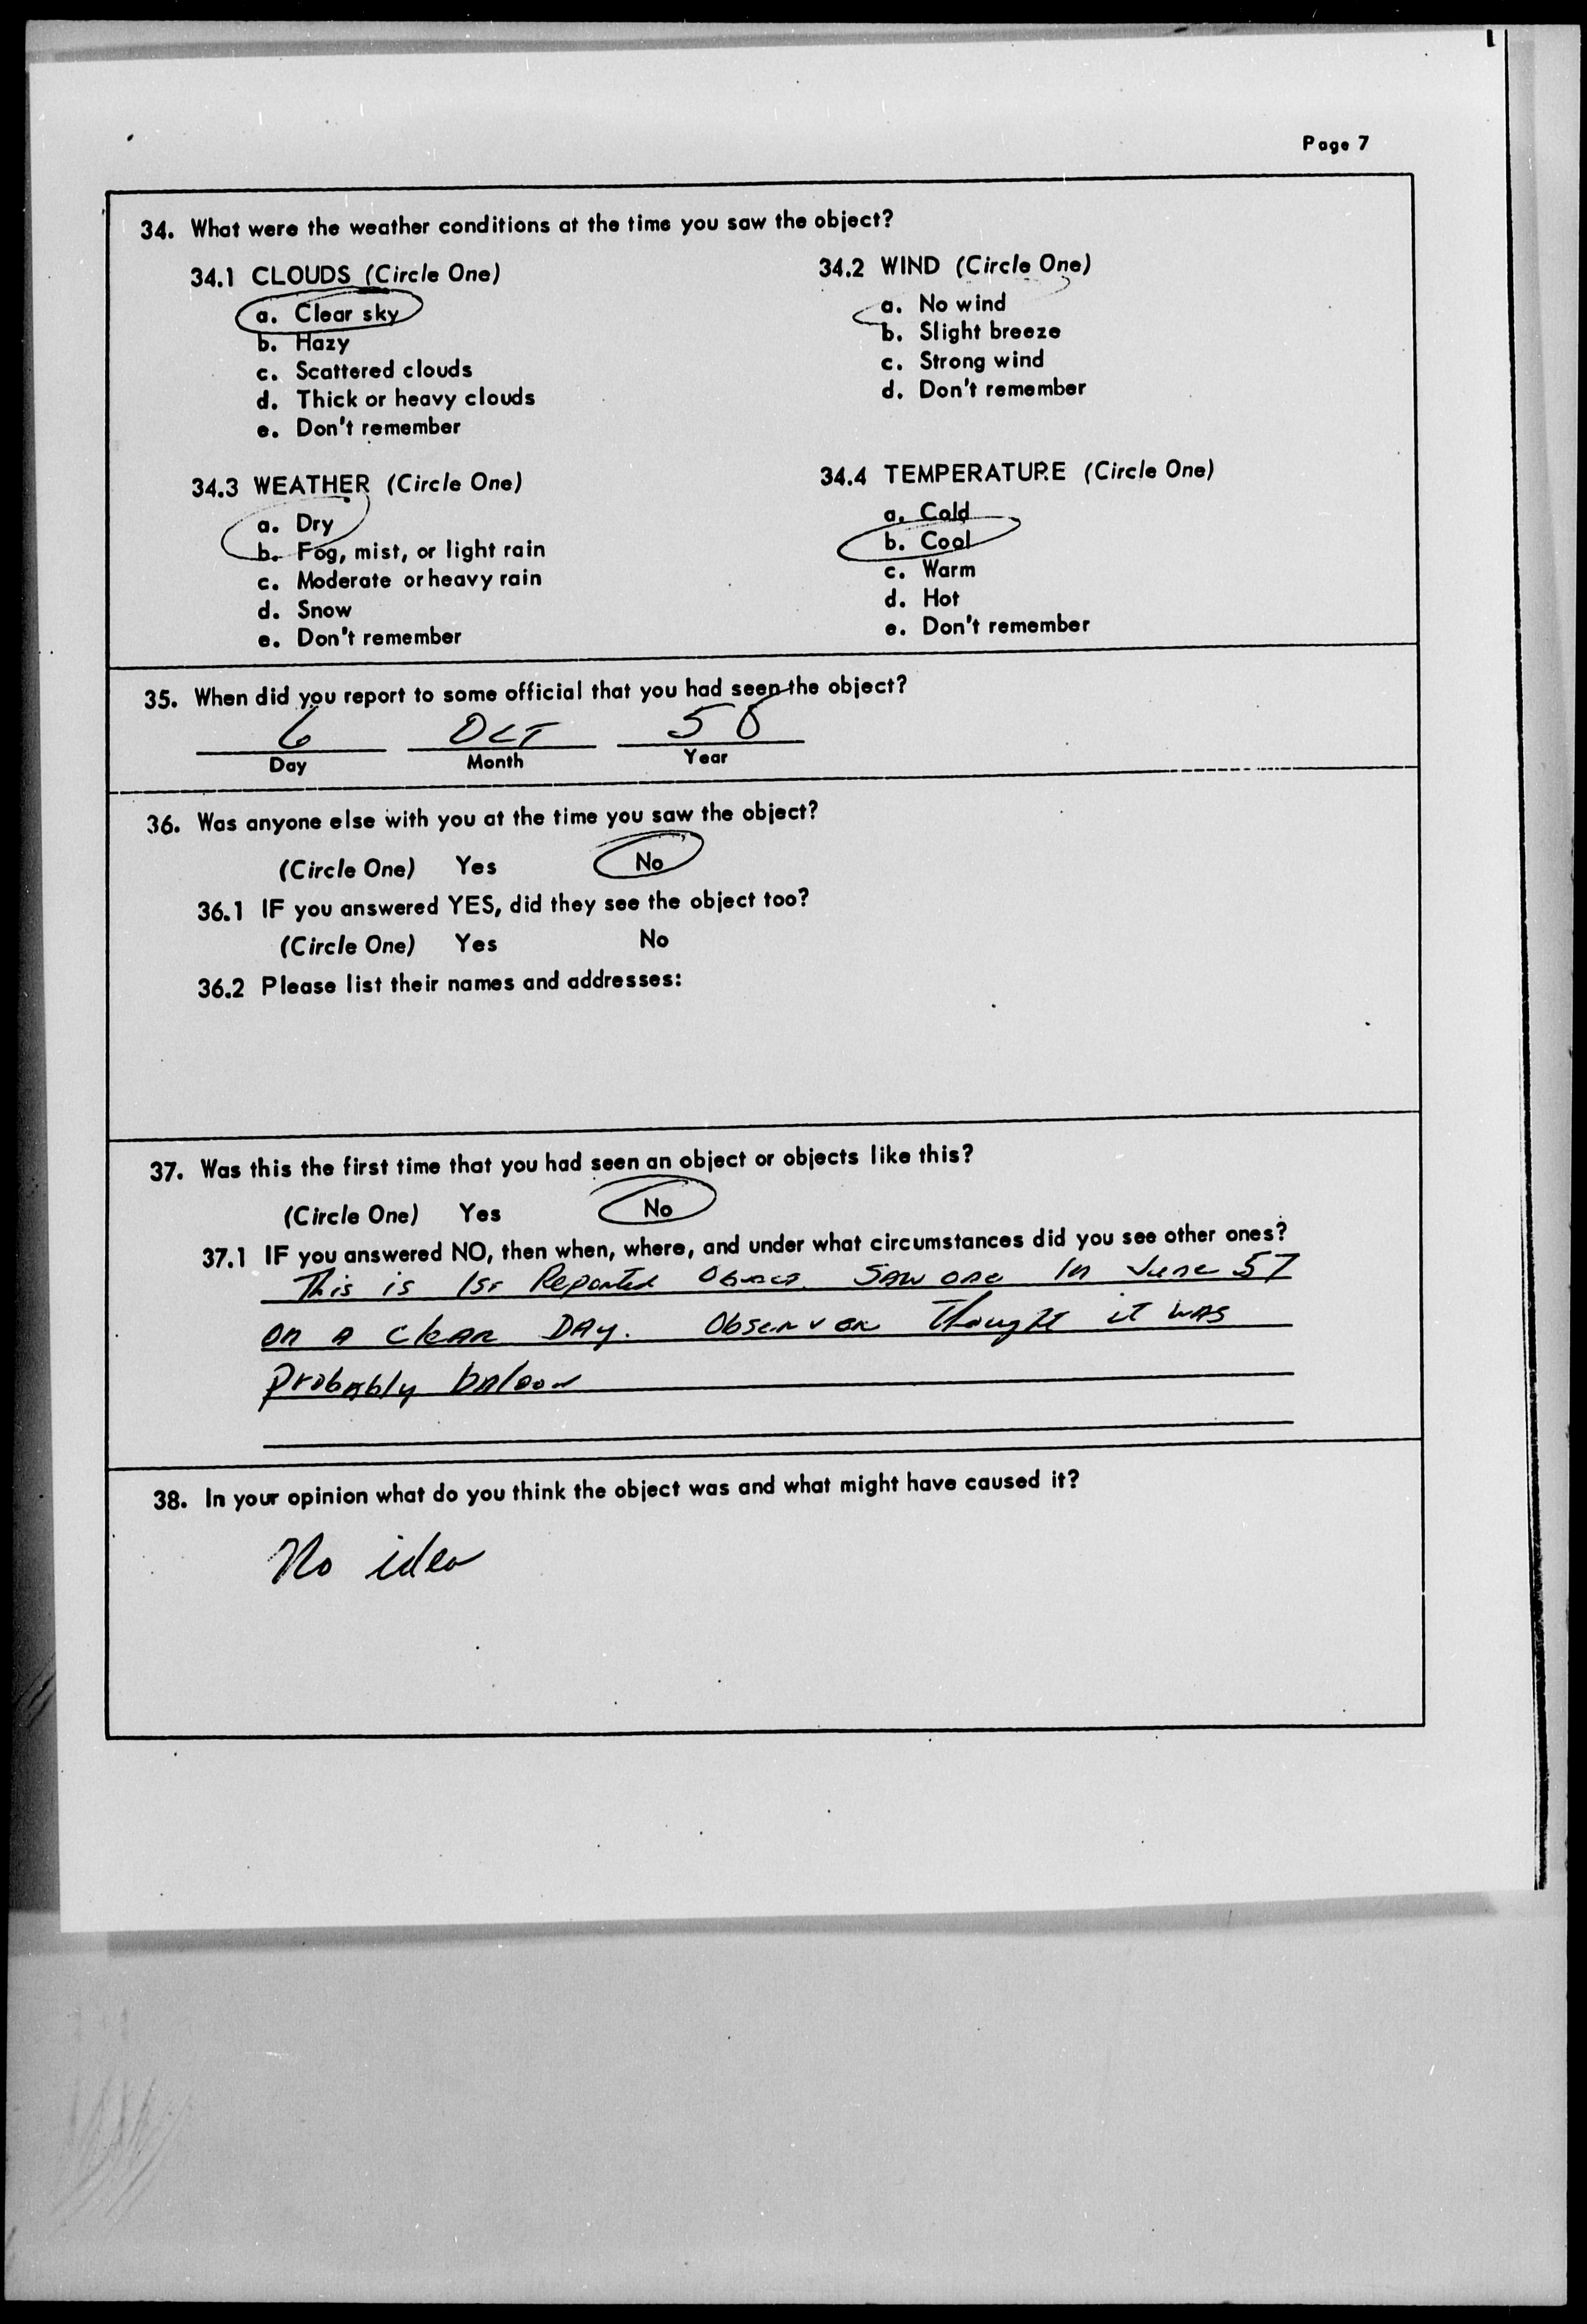 Page 7
34. What were the weather conditions at the time you saw the object?
34.1 CLOUDS (Circle One)
a. Clear sky
b. Hazy
c. Scattered clouds
d. Thick or heavy clouds
e. Don't remember
34.2 WIND (Circle One)
a. No wind
b. Slight breeze
c. Strong wind
d. Don't remember
34.3 WEATHER (Circle One)
a. Dry
b. Fog, mist, or light rain
c. Moderate or heavy rain
d. Snow
e. Don't remember
34.4 TEMPERATURE (Circle One)
a. Cold
b. Cool
c. Warm
d. Hot
e. Don't remember
35. When did you report to some official that you had seen the object?
6 OCT 58
Day Month Year
36. Was anyone else with you at the time you saw the object?
(Circle One) Yes No
36.1 IF you answered YES, did they see the object too?
(Circle One) Yes No
36.2 Please list their names and addresses:
37. Was this the first time that you had seen an object or objects like this?
(Circle One) Yes No
37.1 IF you answered NO, then when, where, and under what circumstances did you see other ones?
This is 1st Reported Object. Saw one in June 57
on a clear DAy. Observer thought it was
probably baloon
38. In your opinion what do you think the object was and what might have caused it?
No idea